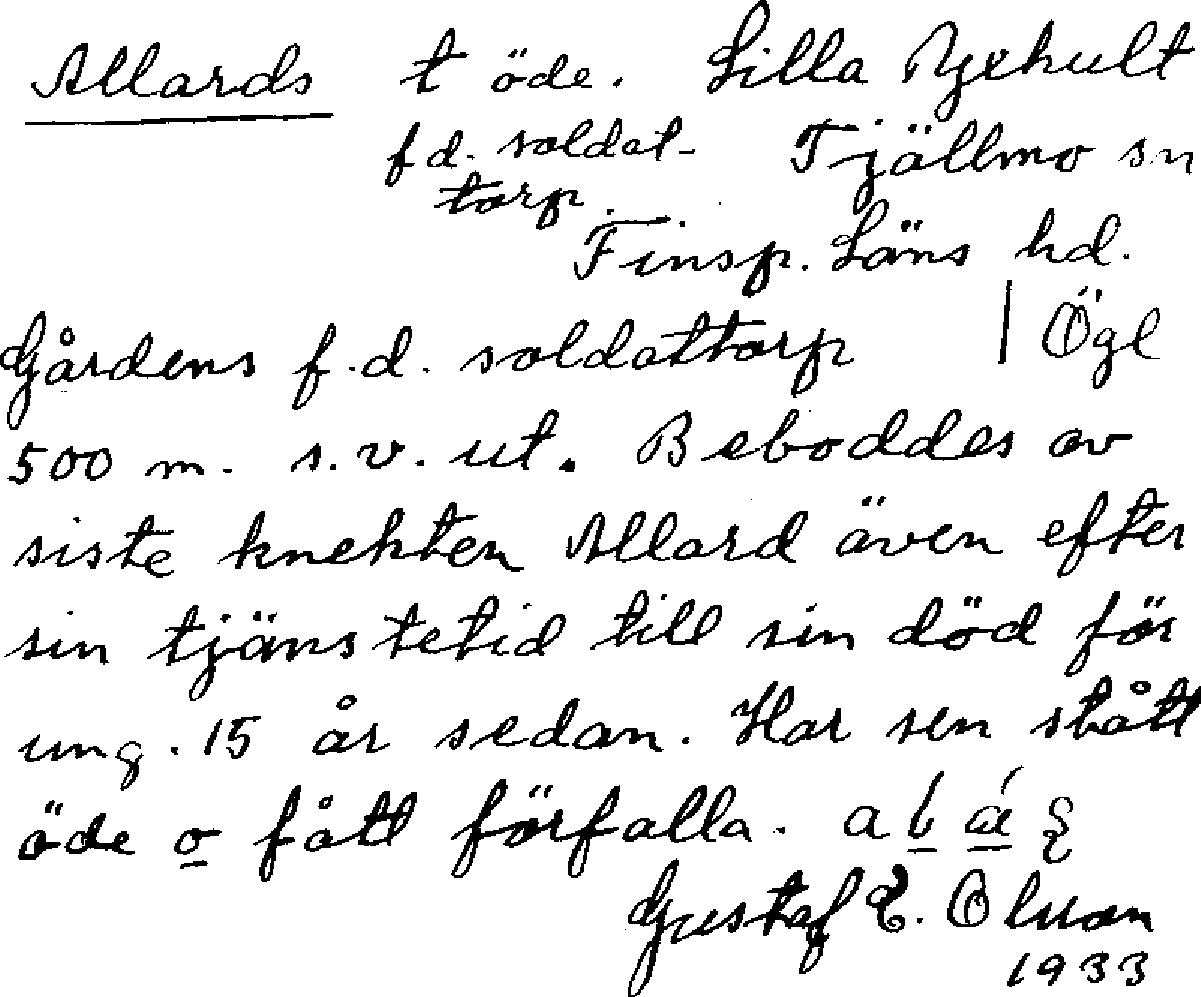 Allards t öde. Lilla Ryehult
f d. soldat- Tjällmo sn
torp.
Finsp. Läns hd.
Gårdens f.d. soldattorp | Ögl
500 m. s.v. ut. Beboddes av
siste knekten Allard även efter
sin tjänstetid till sin död för
ung. 15 år sedan. Har sen stått
öde o fått förfalla.
Gustaf E. Olsson
1933